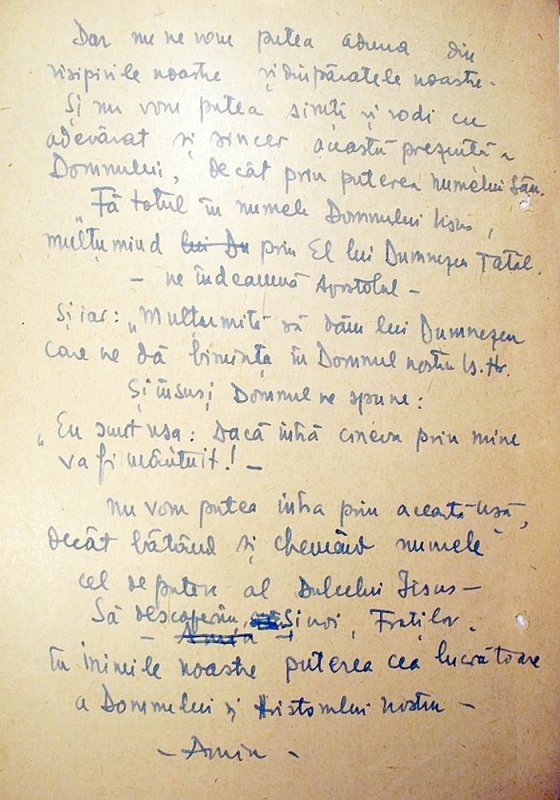 Dar nu ne vom putea aduna din
risipirile noastre și dispăratele noastre.
Și nu vom putea simți și rodi cu
adevărat și sincer această prezență a
Domnului, decât prin puterea numelui Său.
„Fă totul în numele Domnului Iisus,
mulțumind lui Du prin El lui Dumnezeu Tatăl.
– ne îndeamnă Apostolul –
Și iar: „Mulțumită să dăm lui Dumnezeu
care ne dă biruința în Domnul nostru Is. Hr.
Și însuși Domnul ne spune:
„Eu sunt ușa: Dacă intră cineva prin mine
va fi mântuit! –
Nu vom putea intra prin această ușă,
decât bătând și chemând numele
cel de putere al Dulcelui Iisus –
Să descoperim, Și noi, Fraților,
– Amin –
În inimile noastre puterea cea lucrătoare
a Domnului și Hristosului nostru –
– Amin –